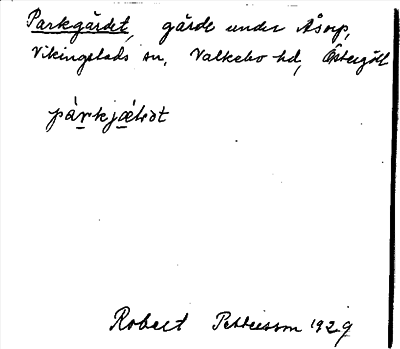 Parkgärdet, gärde under Åsorp,
Vikingstads sn, Valkebo hd, Östergötl
Robert Pettersson 1929